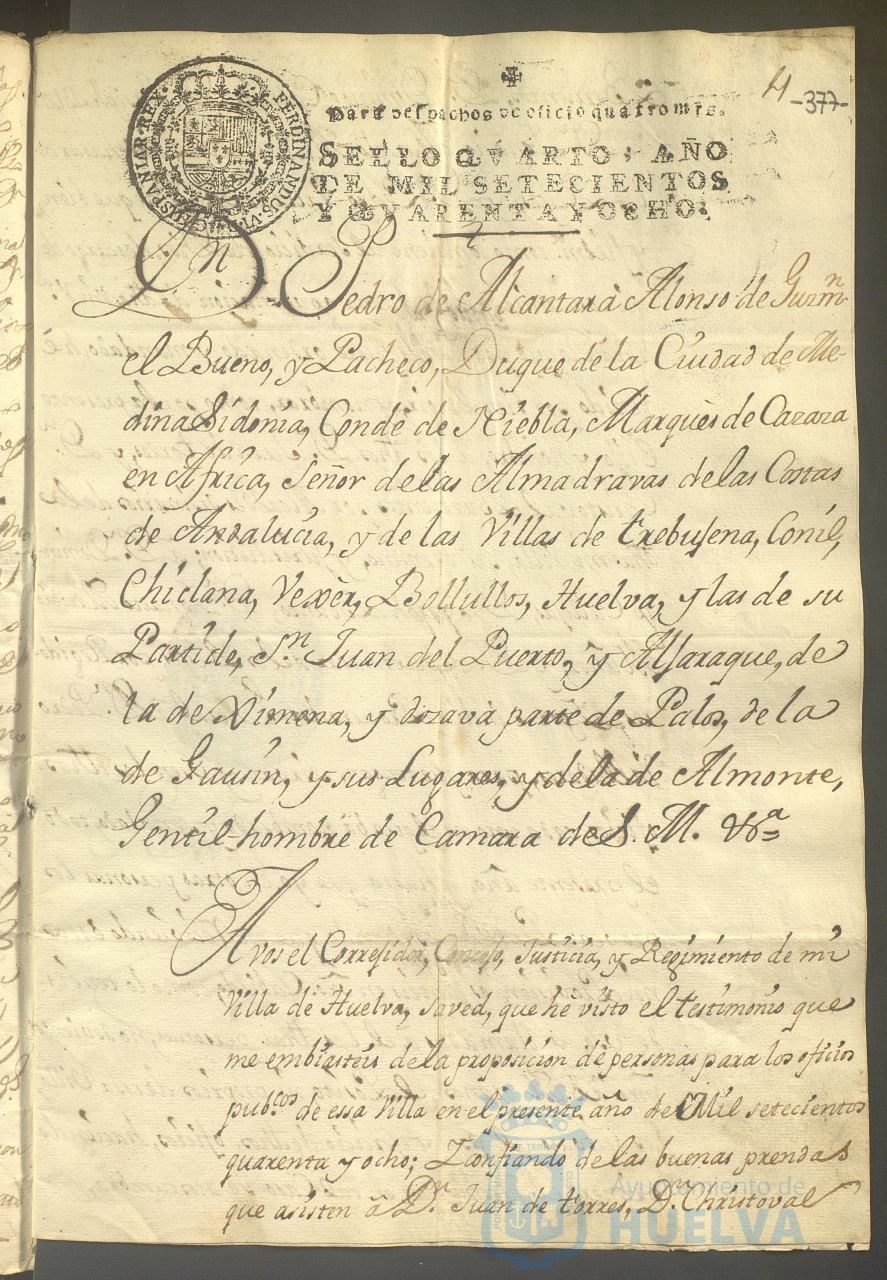 4 -377-
FERDINANDUS·VI·D·G·HISPANIAR·REX·
Para despachos de oficio quatro mrs.
SELLO QVARTO, AÑO
DE MIL SETECIENTOS
Y QVARENTA Y OCHO.
Dn Pedro de Alcantara Alonso de Guzmn
el Bueno, y Pacheco, Duque de la Ciudad de Me-
dina Sidonia, Conde de Niebla, Marquès de Cazaza
en Africa, Señor de las Almadravas de las Costas
de Andalucia, y de las Villas de trebujena, Conil,
Chiclana, Vexèr, Bollullos, Huelva, y las de su
Partido, Sn Juan del Puerto, y Aljaraque, de
la de Ximena, y dozava parte de Palos, de la
de Gausin, y sus Lugares, y de la de Almonte,
Gentil-hombre de Camara de S. M. &a
A vos el Corregidor, Concejo, Justicia, y Regimiento de mi
Villa de Huelva, saved, que hè visto el testimonio que
me embiasteis de la proposicion de personas para los oficios
pubcos de essa Villa en el presente año de Mil setecientos
quarenta y ocho; Y confiando de las buenas prendas
que asisten â Dn Juan de torres, Dn Christoval
Ayuntamiento de
HUELVA